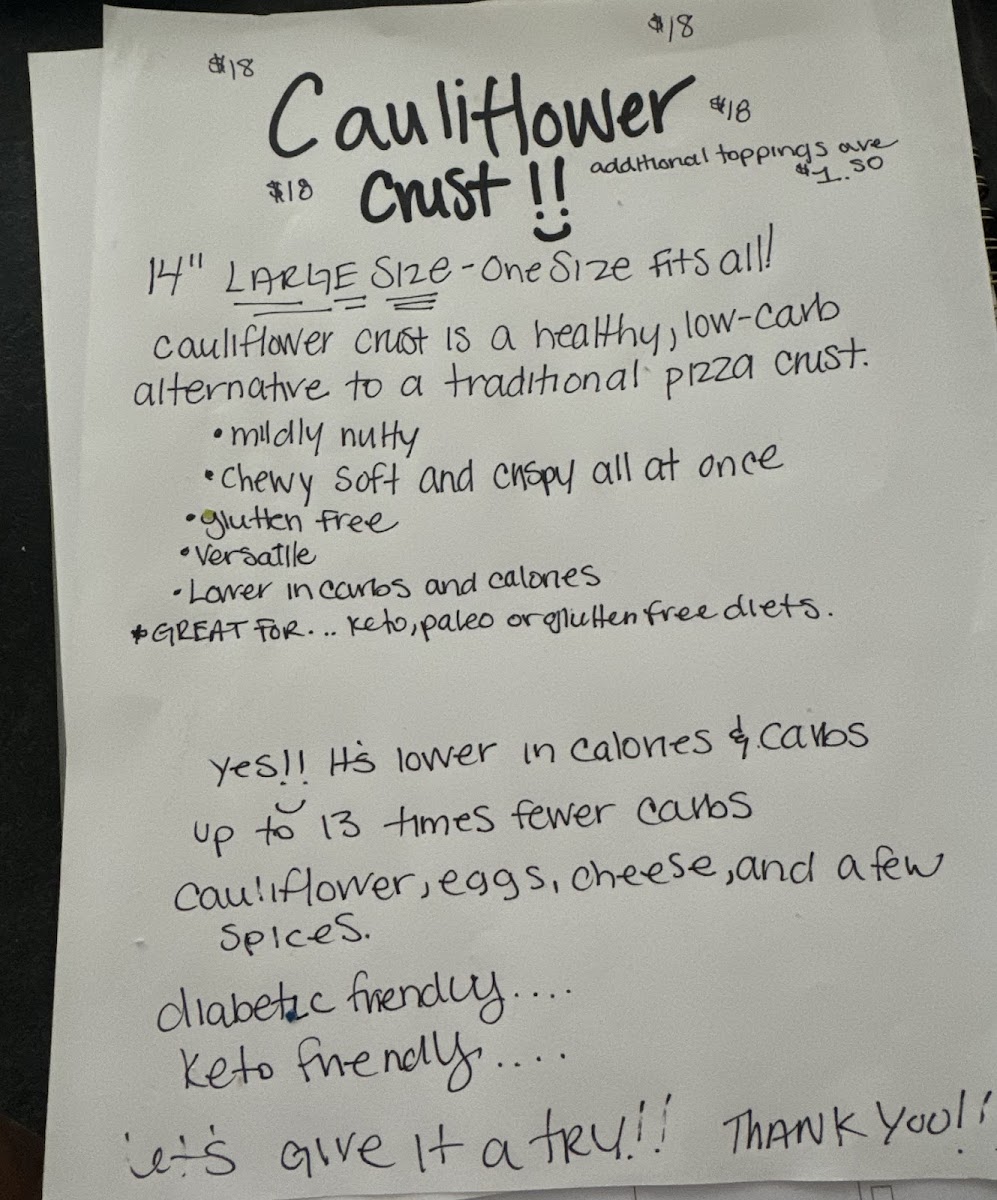 $18
$18
Cauliflower
$18
$18 crust!!
additional toppings are
$1.50
14" LARGE SIZE - One Size fits all!
cauliflower crust is a healthy, low-carb
alternative to a traditional pizza crust.
• mildly nutty
• Chewy soft and crispy all at once
• glutten free
• Versatile
• Lower in carbs and calories
* GREAT FOR... keto, paleo or glutten free diets.
yes!! It's lower in calories & carbs
up to 13 times fewer carbs
cauliflower, eggs, cheese, and a few
spices.
diabetic friendly....
keto friendly....
let's give it a try!! THANK YOU!!